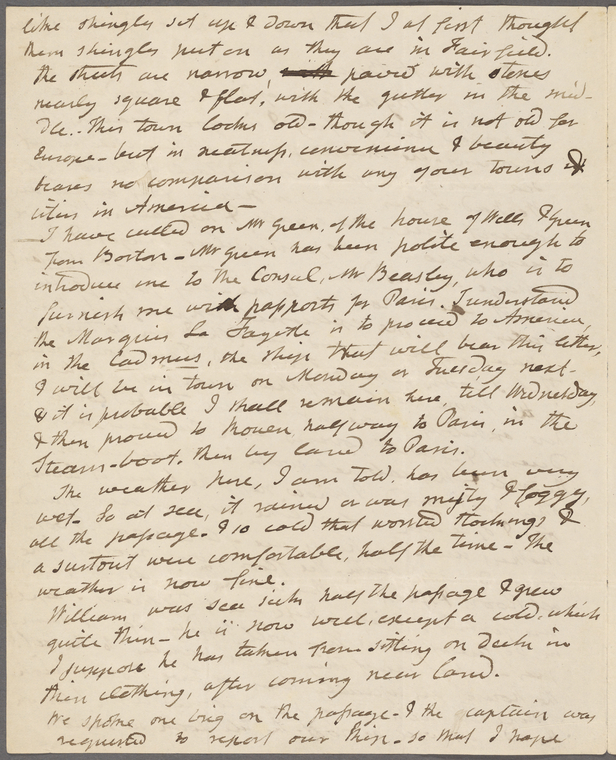 like shingles set up & down that I at first thought
them shingles put on as they are in Fairfield.
The streets are narrow, paved with stones
nearly square & flat, with the gutter in the mid-
dle. This town looks old - though it is not old for
Europe - but in neatness, convenience & beauty
bears no comparison with any of our towns &
cities in America -
I have called on Mr Green, of the house of Wells & Green
from Boston - Mr Green has been polite enough to
introduce me to the Consul, Mr Beasley, who is to
furnish me with passports for Paris. I understand
the Marquis La Fayette is to proceed to America,
in the Cadmus, the ship that will bear this letter,
& will be in town on Monday or Tuesday next -
& it is probable I shall remain here, till Wednesday,
& then proceed to Rouen, half way to Paris, in the
Steam-boat, then by land to Paris.
The weather here, I am told, has been very
wet. So at sea, it rained or was misty & foggy,
all the passage. & so cold that worsted stockings &
a surtout were comfortable, half the time - The
weather is now fine.
William was sea sick half the passage & grew
quite thin - he is now well, except a cold, which
I suppose he has taken from sitting on deck in
thin clothing, after coming near land.
We spoke one brig on the passage - & the captain was
requested to report our ship - so that I hope